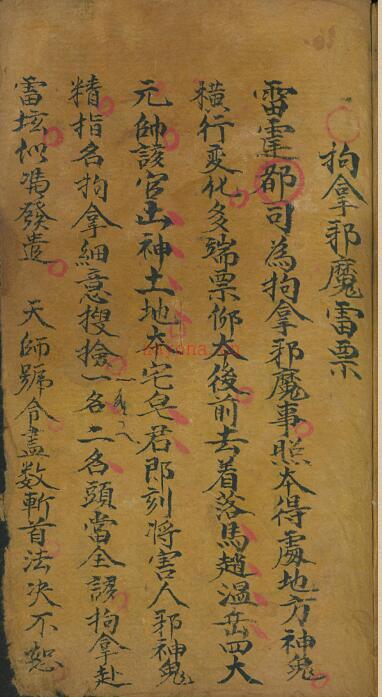 拘拿邪魔雷票
雷霆都司為拘拿邪魔事照本得處地方神鬼
橫行变化多端票仰本後前去着落馬趙溫岳四大
元帥該官山神土地本宅皂君即刻将害人邪神鬼
精指名拘拿細意搜捡一名二名頭當全諺拘拿赴
雷垓似馮發遣 天師號令盡數斬首法决不恕